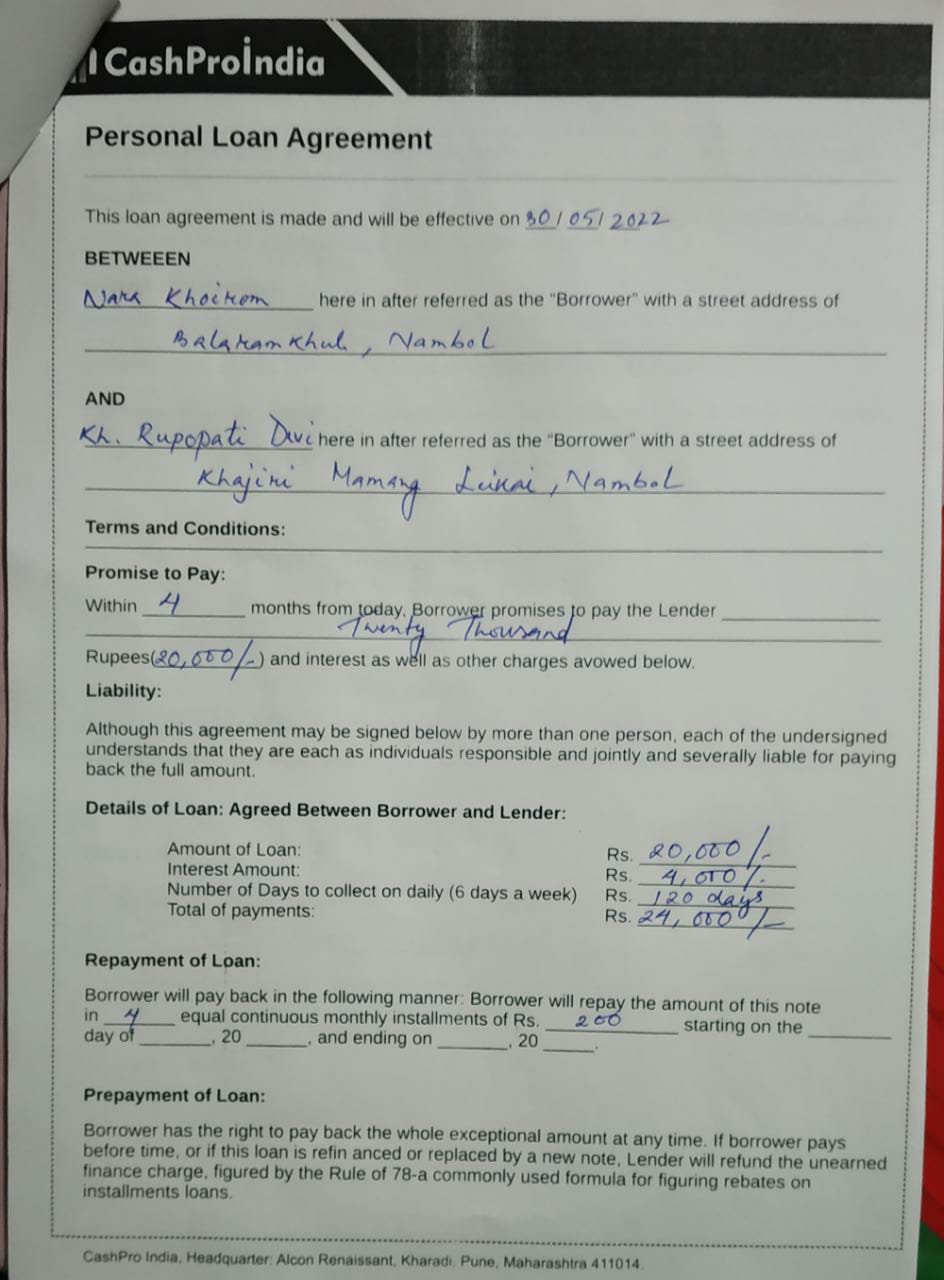 CashProIndia
Personal Loan Agreement
This loan agreement is made and will be effective on 30/05/2022
BETWEEEN
Nara Khoirom here in after referred as the “Borrower” with a street address of
Balaramkhul, Nambol
AND
Kh. Rupopati Devi here in after referred as the “Borrower” with a street address of
Khajiri Mamang Leikai, Nambol
Terms and Conditions:
Promise to Pay:
Within 4 months from today, Borrower promises to pay the Lender
Twenty Thousand
Rupees(20,000/-) and interest as well as other charges avowed below.
Liability:
Although this agreement may be signed below by more than one person, each of the undersigned
understands that they are each as individuals responsible and jointly and severally liable for paying
back the full amount.
Details of Loan: Agreed Between Borrower and Lender:
Amount of Loan: Rs. 20,000/-
Interest Amount: Rs. 4,000/-
Number of Days to collect on daily (6 days a week) Rs. 120 days
Total of payments: Rs. 24,000/-
Repayment of Loan:
Borrower will pay back in the following manner: Borrower will repay the amount of this note
in 4 equal continuous monthly installments of Rs. 200 starting on the
day of ______, 20 _____, and ending on ______, 20 ____.
Prepayment of Loan:
Borrower has the right to pay back the whole exceptional amount at any time. If borrower pays
before time, or if this loan is refin anced or replaced by a new note, Lender will refund the unearned
finance charge, figured by the Rule of 78-a commonly used formula for figuring rebates on
installments loans.
CashPro India, Headquarter: Alcon Renaissant, Kharadi. Pune, Maharashtra 411014.